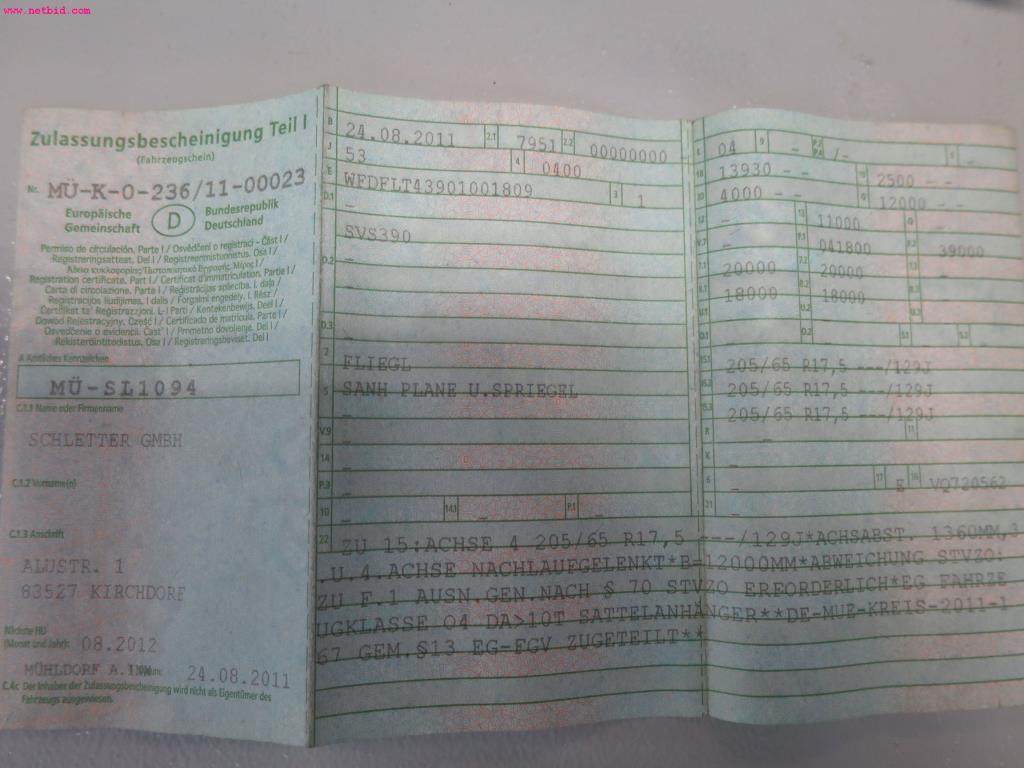 www.netbid.com
Zulassungsbescheinigung Teil I
(Fahrzeugschein)
Nr. MÜ-K-0-236/11-00023
Europäische Gemeinschaft
D
Bundesrepublik Deutschland
Permiso de circulación. Parte I / Osvědčení o registraci - Část I /
Registreringsattest. Del I / Registreerimistunnistus. Osa I /
Άδεια κυκλοφορίας. Μέρος I /
Registration certificate. Part I / Certificat d'immatriculation. Partie I /
Carta di circolazione. Parte I / Reģistrācijas apliecība. I. daļa /
Registracijos liudijimas. I dalis / Forgalmi engedély. I. Rész /
Ċertifikat ta' Reġistrazzjoni. L-I Parti / Kentekenbewijs. Deel I /
Dowód Rejestracyjny. Część I / Certificado de matrícula. Parte I /
Osvedčenie o evidencii. Časť I / Prometno dovoljenje. Del I /
Rekisteröintitodistus. Osa I / Registreringsbeviset. Del I
A Amtliches Kennzeichen
MÜ-SL1094
C.1.1 Name oder Firmenname
SCHLETTER GMBH
C.1.2 Vorname(n)
C.1.3 Anschrift
ALUSTR. 1
83527 KIRCHDORF
Nächste HU
(Monat und Jahr): 08.2012
MÜHLDORF A. INN 24.08.2011
C.4c Der Inhaber der Zulassungsbescheinigung wird nicht als Eigentümer des
Fahrzeugs ausgewiesen.
B 24.08.2011 2.1 7951 2.2 00000000
J 53 4 0400
E WFDFLT43901001809 3 1
D.1 -
SVS390
D.2 -
D.3 -
2 FLIEGL
5 SANH PLANE U.SPRIEGEL
V.9 -
14 -
P.3 -
10 - 14.1 - P.1 -
04 9 - /-
18 13930 - - 19 2500 - -
20 4000 - - 12000 - -
12 - 13 11000
V.7 - F.1 041800 F.2 39000
7.1 20000 7.2 20000 7.3 -
8.1 18000 8.2 18000 8.3
U.1 U.2 S.1 S.2
15.1 205/65 R17,5 ---/129J
15.2 205/65 R17,5 ---/129J
15.3 205/65 R17,5 ---/129J
R - 11
K -
6 - 17 E 16 VQ720562
21 -
22 ZU 15:ACHSE 4 205/65 R17,5 ---/129J*ACHSABST. 1360MM,3
.U.4.ACHSE NACHLAUFGELENKT*B-12000MM*ABWEICHUNG STVZO:
ZU F.1 AUSN.GEN.NACH § 70 STVZO ERFORDERLICH*EG FAHRZE
UGKLASSE O4 DA>10T SATTELANHÄNGER**DE-MUE-KREIS-2011-1
67 GEM.§13 EG-FGV ZUGETEILT**